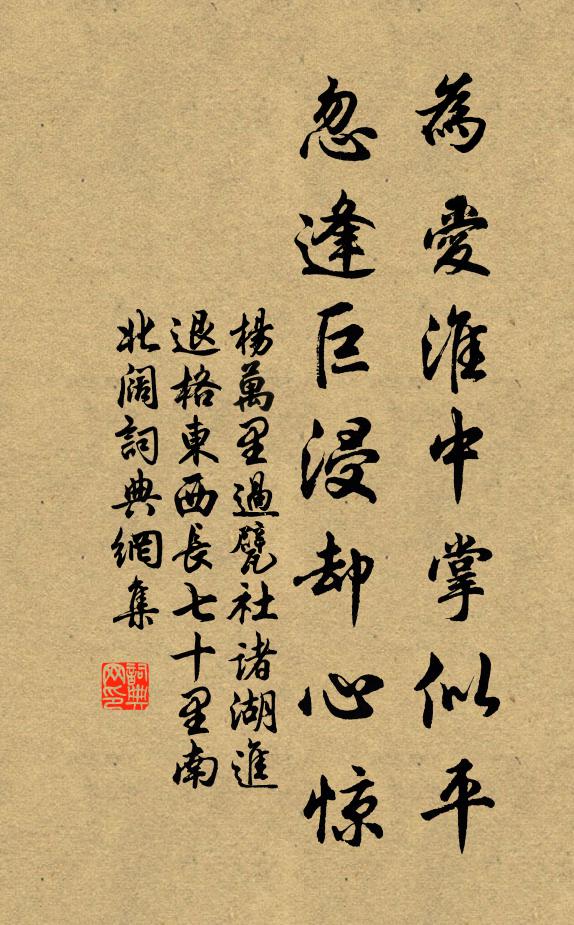 為愛淮中掌似平
忽逢巨浸却心惊
楊萬里過甓社諸湖進
退格東西長七十里南
北阔詞典網集
詞典
网印